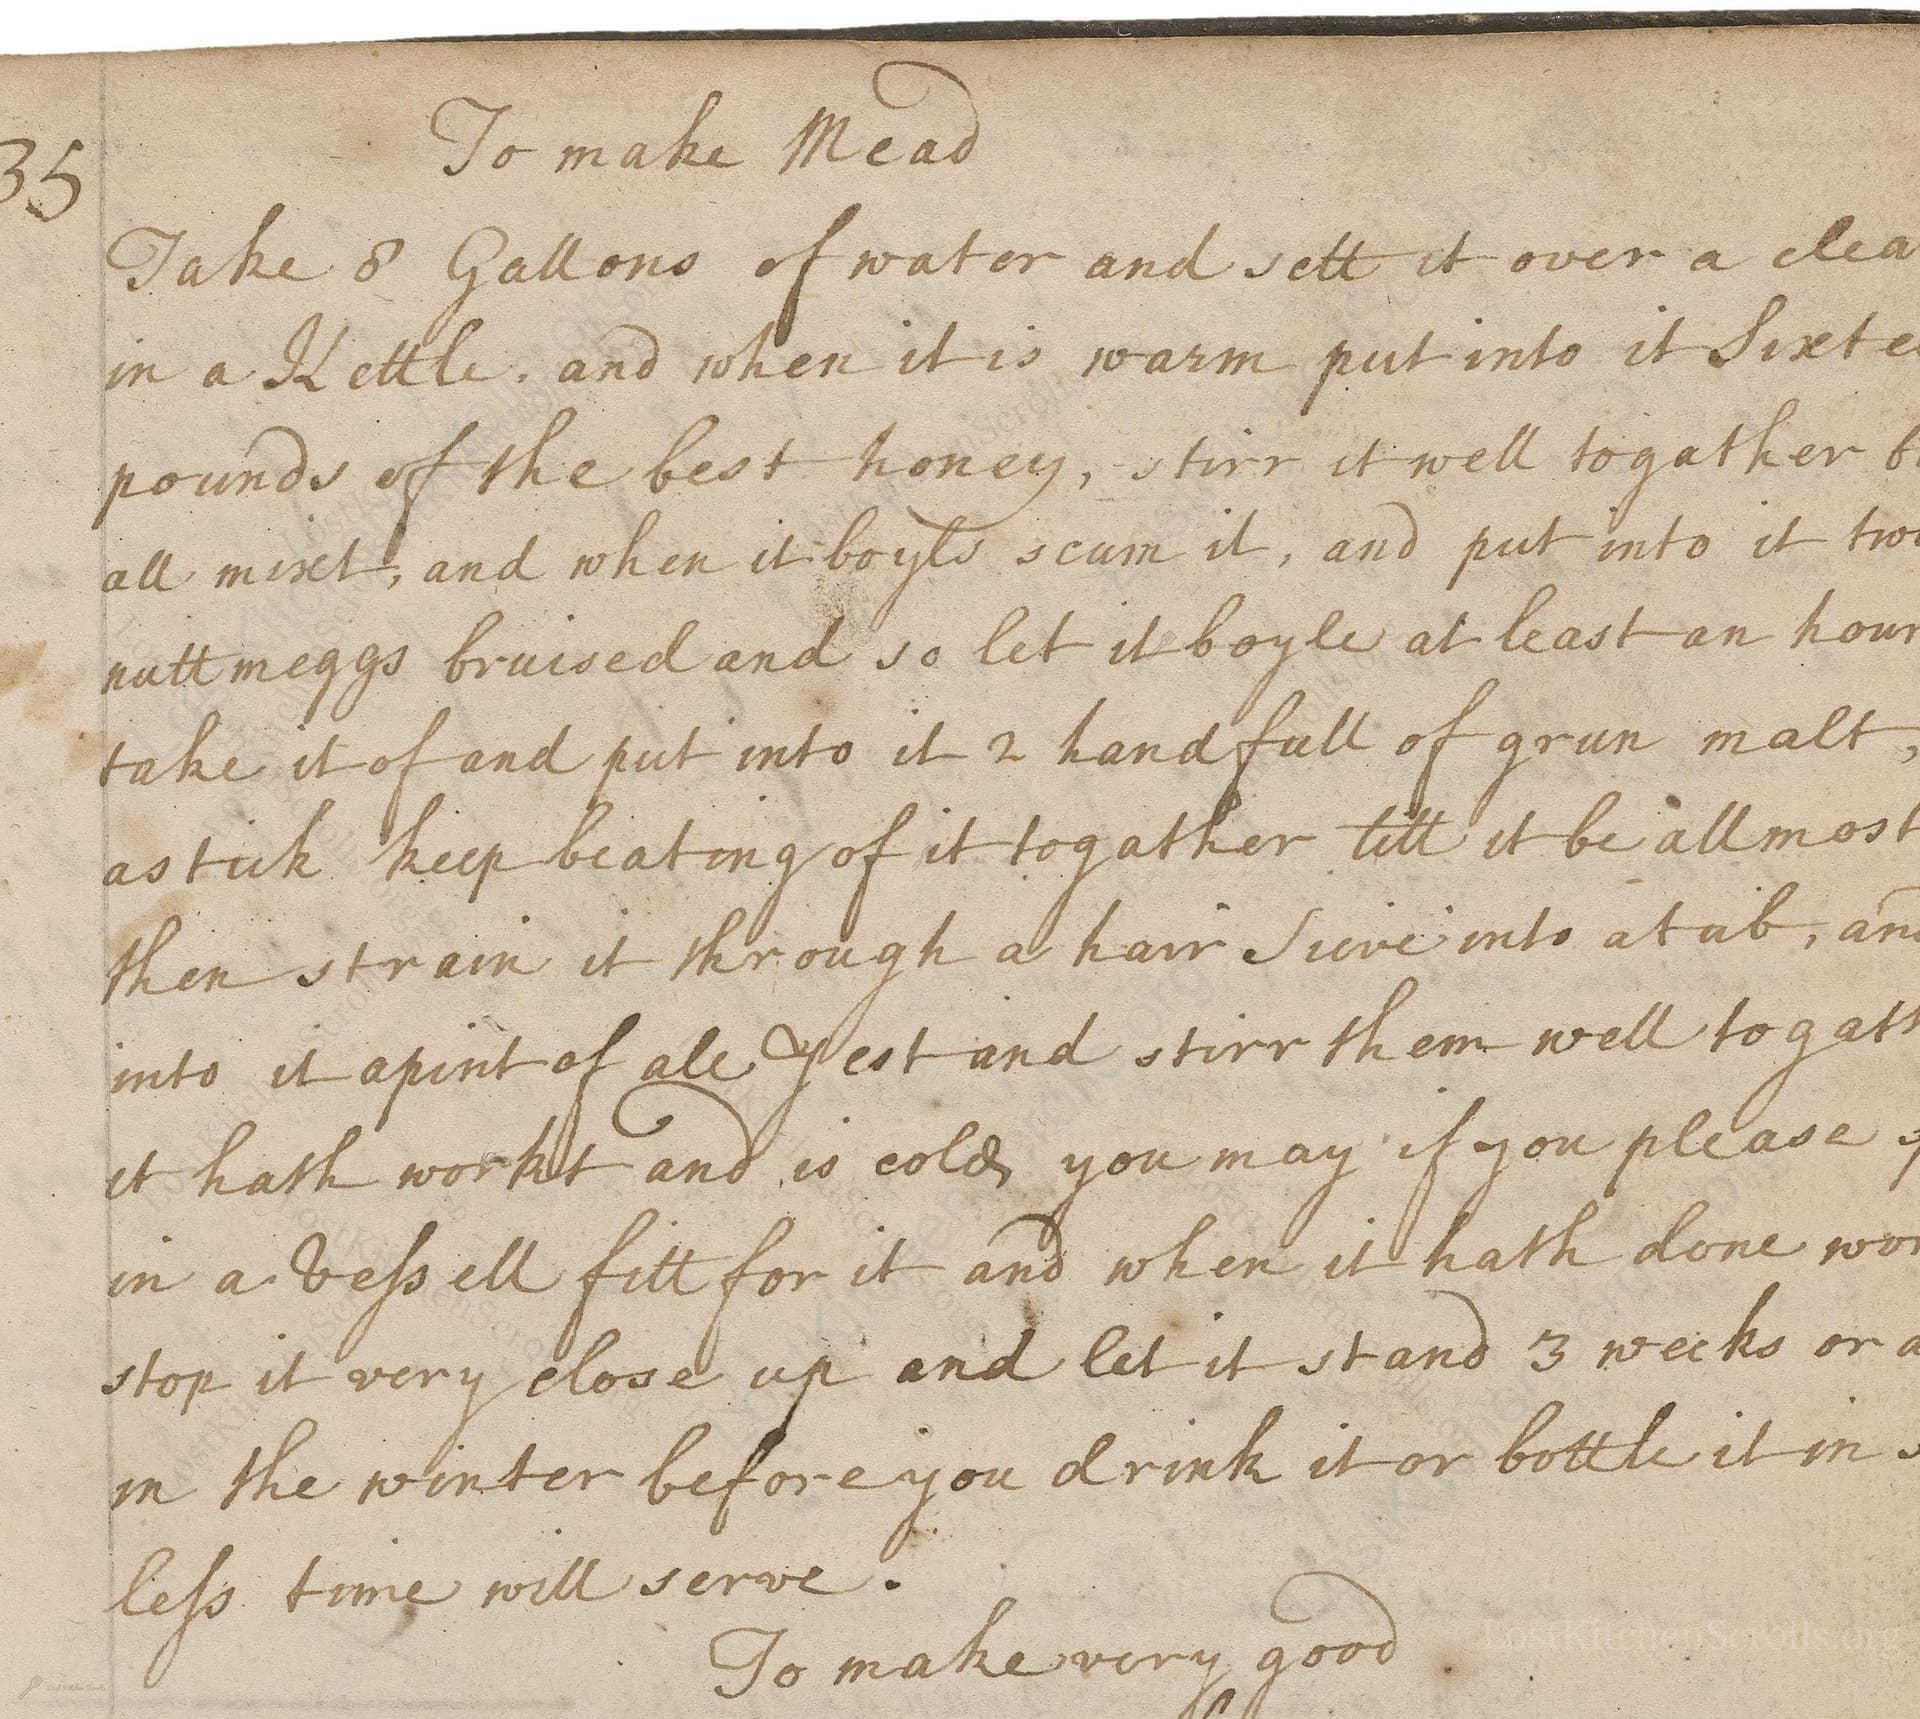 To make Mead
35
Take 8 Gallons of water and sett it over a clea
in a Kettle. and when it is warm put into it Sixte
pounds of the best honey, stirr it well togather
all mixt, and when it boyls scum it, and put into it two
nuttmeggs bruised and so let it boyle at least an hour
take it of and put into it 2 handfull of grun malt,
a stick keep beating of it togather till it be allmost
then strain it through a hair Sieve into a tub, and
into it a pint of ale Yest and stirr them well togath
it hath workt and is cold, you may if you please
in a Vessell fitt for it and when it hath done wor
stop it very close up and let it stand 3 weeks or a
in the winter before you drink it or bottle it in s
less time will serve.
To make very good
LostKitchenScrolls.org